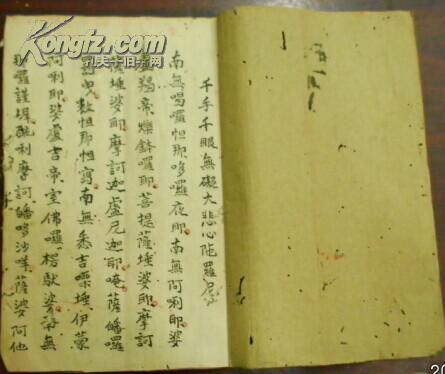 Kongfz.com
千手千眼無礙大悲心陀羅尼
南無喝囉怛那哆囉夜耶南無阿唎耶婆
盧羯帝爍鉢囉耶菩提薩埵婆耶摩訶
薩埵婆耶摩訶迦盧尼迦耶唵薩皤囉
罰曳數怛那怛寫南無悉吉栗埵伊蒙
阿唎耶婆盧吉帝室佛囉楞馱婆南無
那囉謹墀醯利摩訶皤哆沙咩薩婆阿他